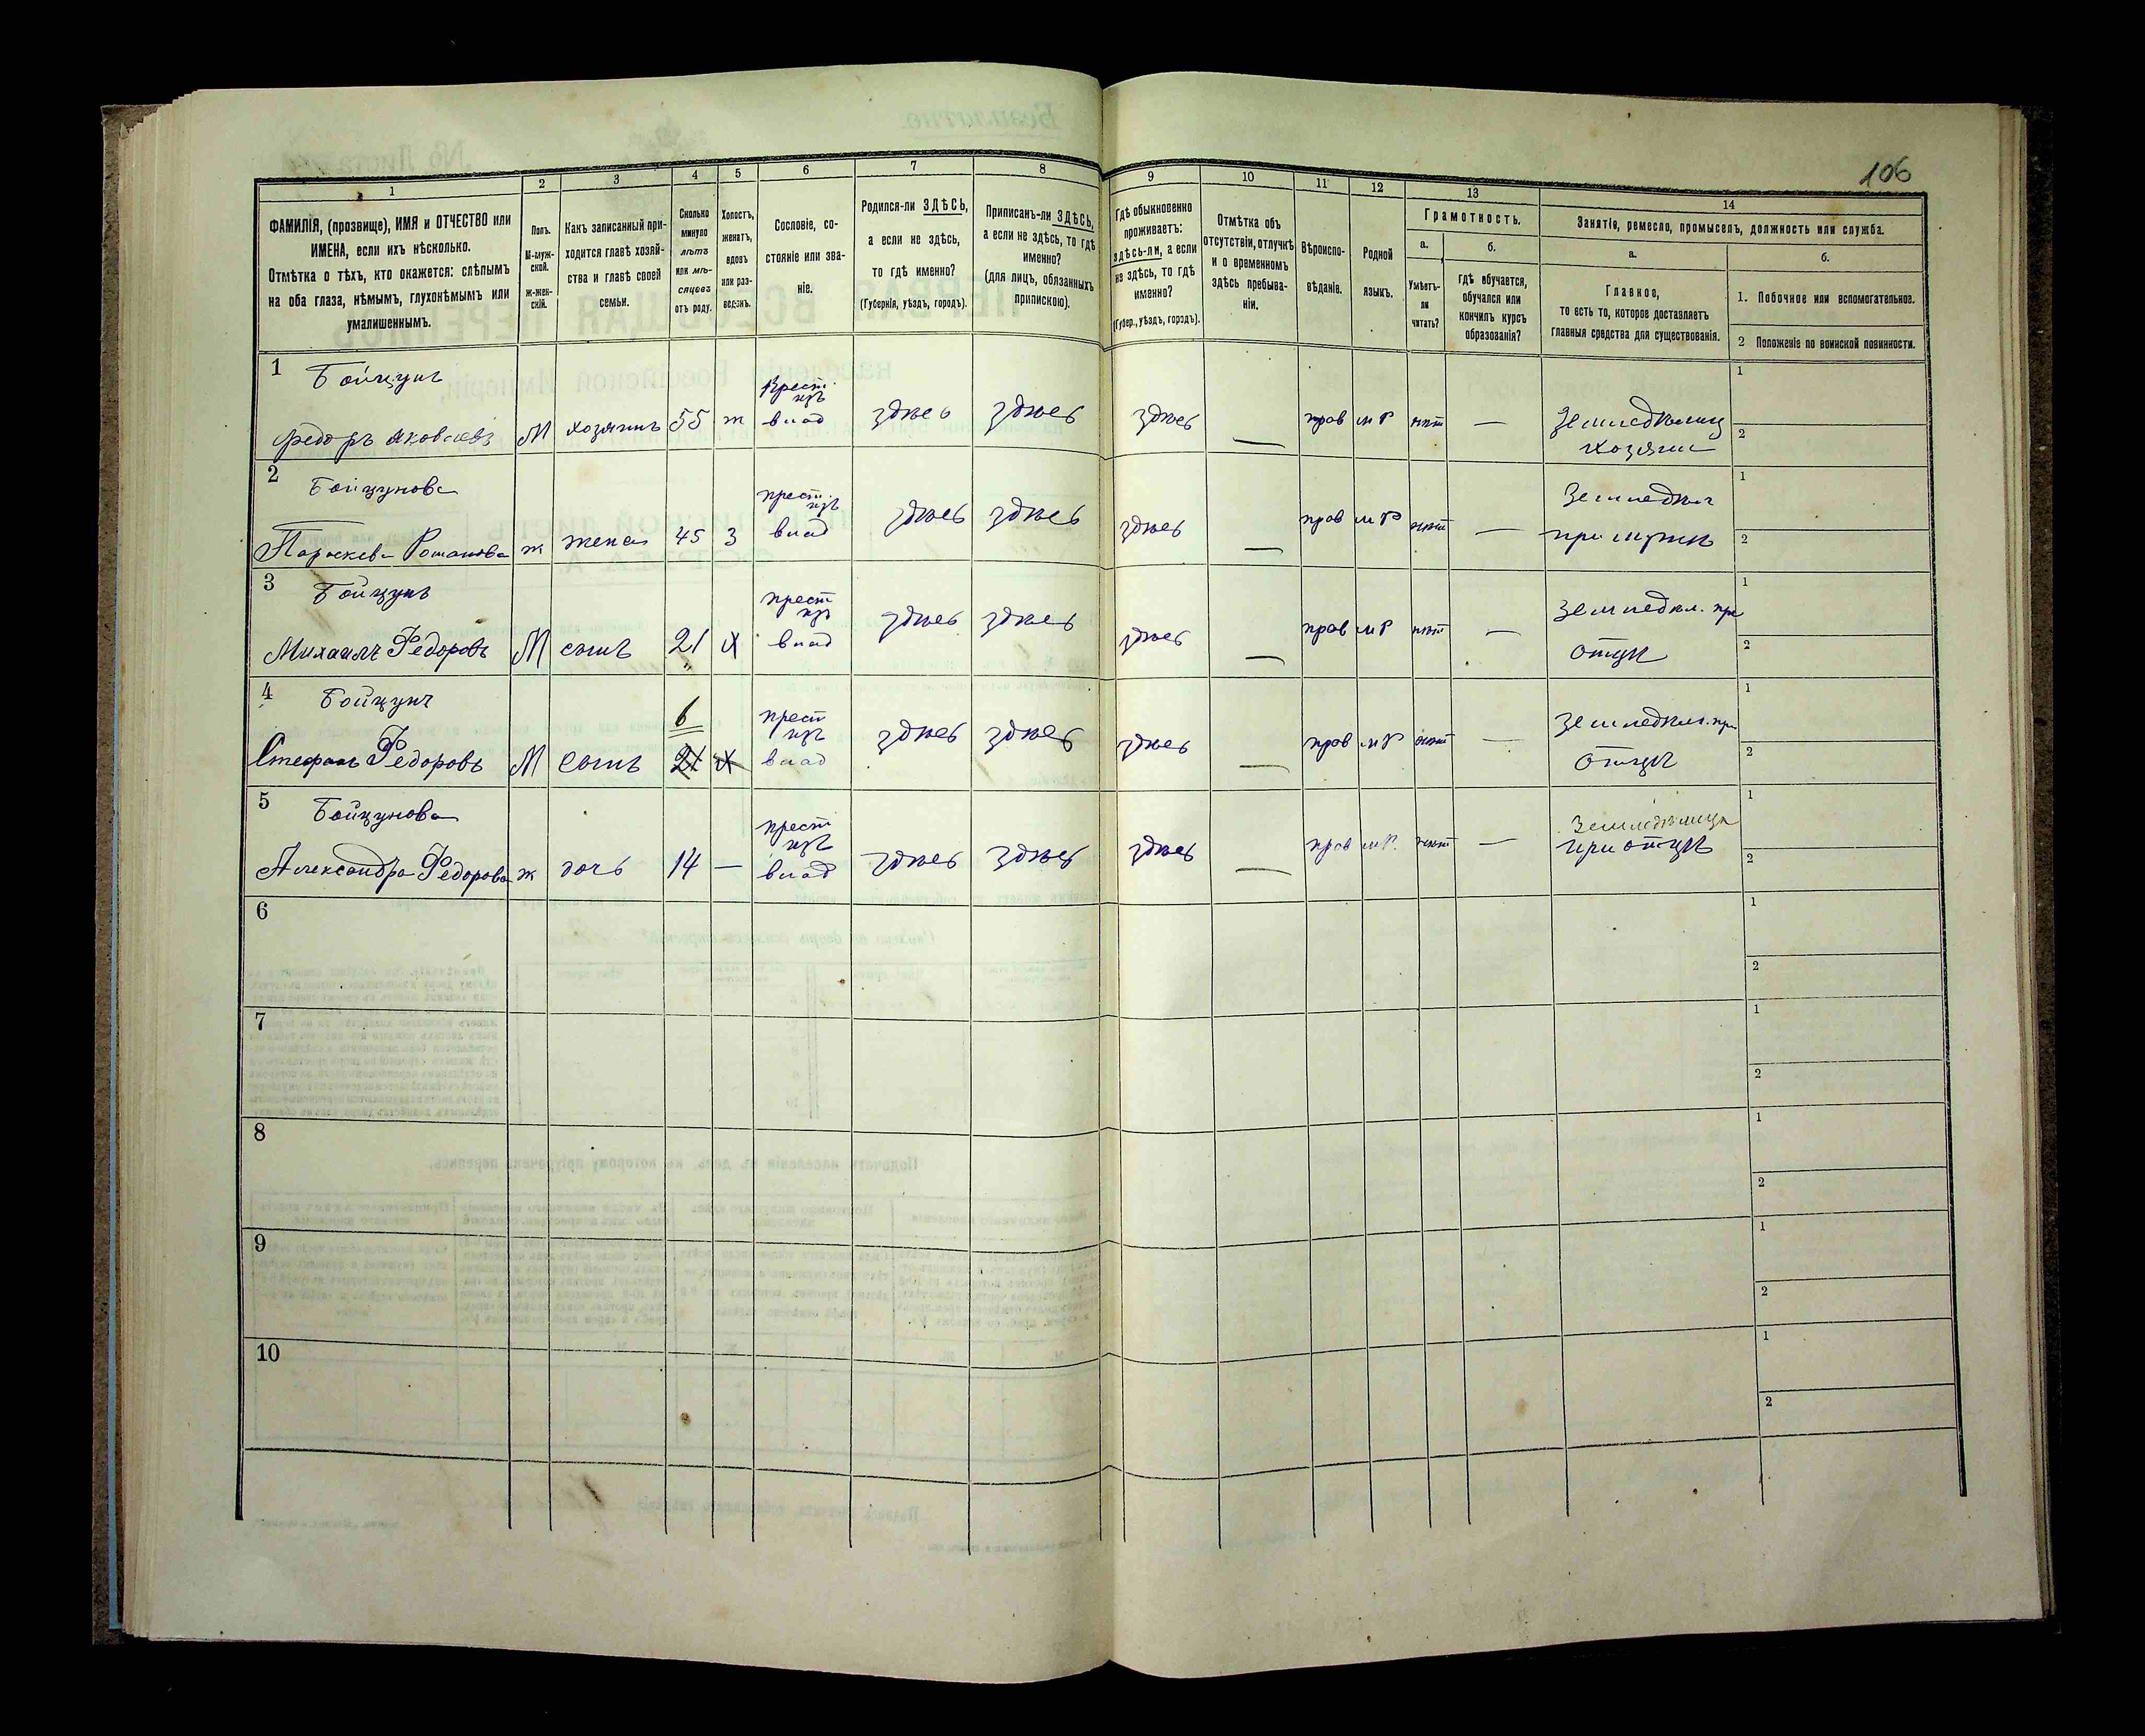 106
1
2
3
4
5
6
7
8
9
10
11
12
13
14
ФАМИЛІЯ, (прозвище), ИМЯ и ОТЧЕСТВО или
ИМЕНА, если ихъ нѣсколько.
Отмѣтка о тѣхъ, кто окажется: слѣпымъ
на оба глаза, нѣмымъ, глухонѣмымъ или
умалишеннымъ.
Полъ.
М-муж-
ской.
Ж-жен-
скій.
Какъ записанный при-
ходится главѣ хозяй-
ства и главѣ своей
семьи.
Сколько
минуло
лѣтъ
или мѣ-
сяцевъ
отъ роду.
Холостъ,
женатъ,
вдовъ
или раз-
веденъ.
Сословіе, со-
стояніе или зва-
ніе.
Родился-ли ЗДѢСЬ,
а если не здѣсь,
то гдѣ именно?
(Губернія, уѣздъ, городъ).
Приписанъ-ли ЗДѢСЬ,
а если не здѣсь, то гдѣ
именно?
(для лицъ, обязанныхъ
припискою).
Гдѣ обыкновенно
проживаетъ:
здѣсь-ли, а если
не здѣсь, то гдѣ
именно?
(Губер., уѣздъ, городъ).
Отмѣтка объ
отсутствіи, отлучкѣ
и о временномъ
здѣсь пребыва-
ніи.
Вѣроиспо-
вѣданіе.
Родной
языкъ.
Грамотность.
а.
Умѣетъ-
ли
читать?
б.
Гдѣ обучается,
обучался или
кончилъ курсъ
образованія?
Занятіе, ремесло, промыселъ, должность или служба.
а.
Главное,
то есть то, которое доставляетъ
главныя средства для существованія.
б.
1. Побочное или вспомогательное.
2 Положеніе по воинской повинности.
1 Бойцунъ
Крест.
изъ
Федоръ Яковлевъ М хозяинъ 55 ж влад здѣсь здѣсь здѣсь — прав мР нѣт — Земледѣлец
хозяин
1
2
2 Бойцунова
крест.
изъ
Параскева Романова ж жена 45 З влад здѣсь здѣсь здѣсь — прав мР нѣт — Земледѣл
при мужѣ
1
2
3 Бойцунъ
крест
изъ
Михаилъ Федоровъ М сынъ 21 Х влад здѣсь здѣсь здѣсь — прав мР нѣт — Земледѣл. при
отцѣ
1
2
4 Бойцунъ
6
крест
изъ
Стефанъ Федоровъ М сынъ 21 Х влад здѣсь здѣсь здѣсь — прав мР нѣт — Земледѣл. при
отцѣ
1
2
5 Бойцунова
крест
изъ
Александра Федорова ж дочь 14 — влад здѣсь здѣсь здѣсь — прав мР. нѣт — Земледѣлица
при отцѣ
1
2
6
1
2
7
1
2
8
1
2
9
1
2
10
1
2